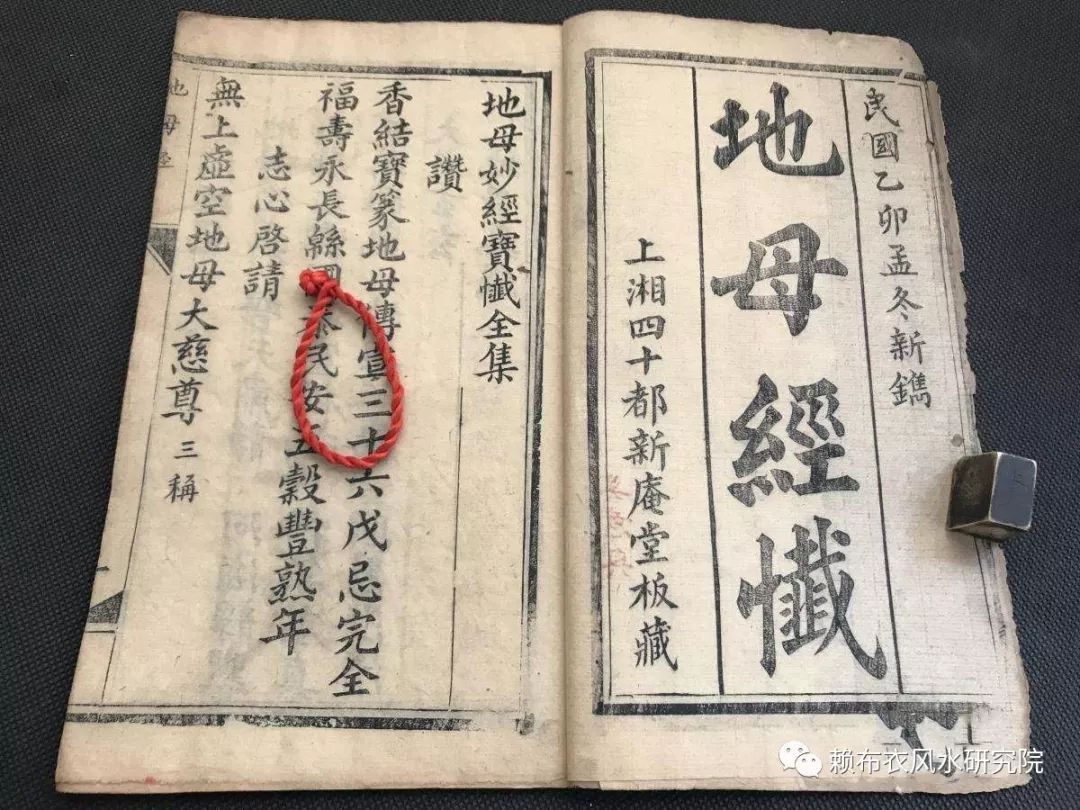 民國乙卯孟冬新鐫
地母經懺
上湘四十都新庵堂板藏
地母妙經寶懺全集
讚
香結寶篆地母傳宣三十六戊忌完全
福壽永長綿國泰民安五穀豐熟年
志心啓請
無上虛空地母大慈尊 三稱
地母
赖布衣风水研究院